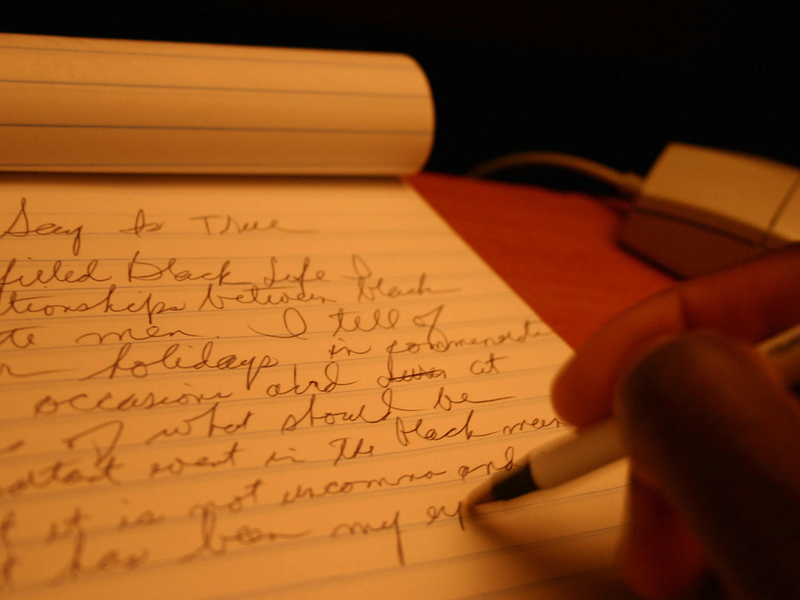 Say Is True
filled Black Life
tionships between black
te men. I tell of
holidays in commemorati
occasions and at
of what should be
ortant event in the black men
it is not uncommo and
t has been my ex